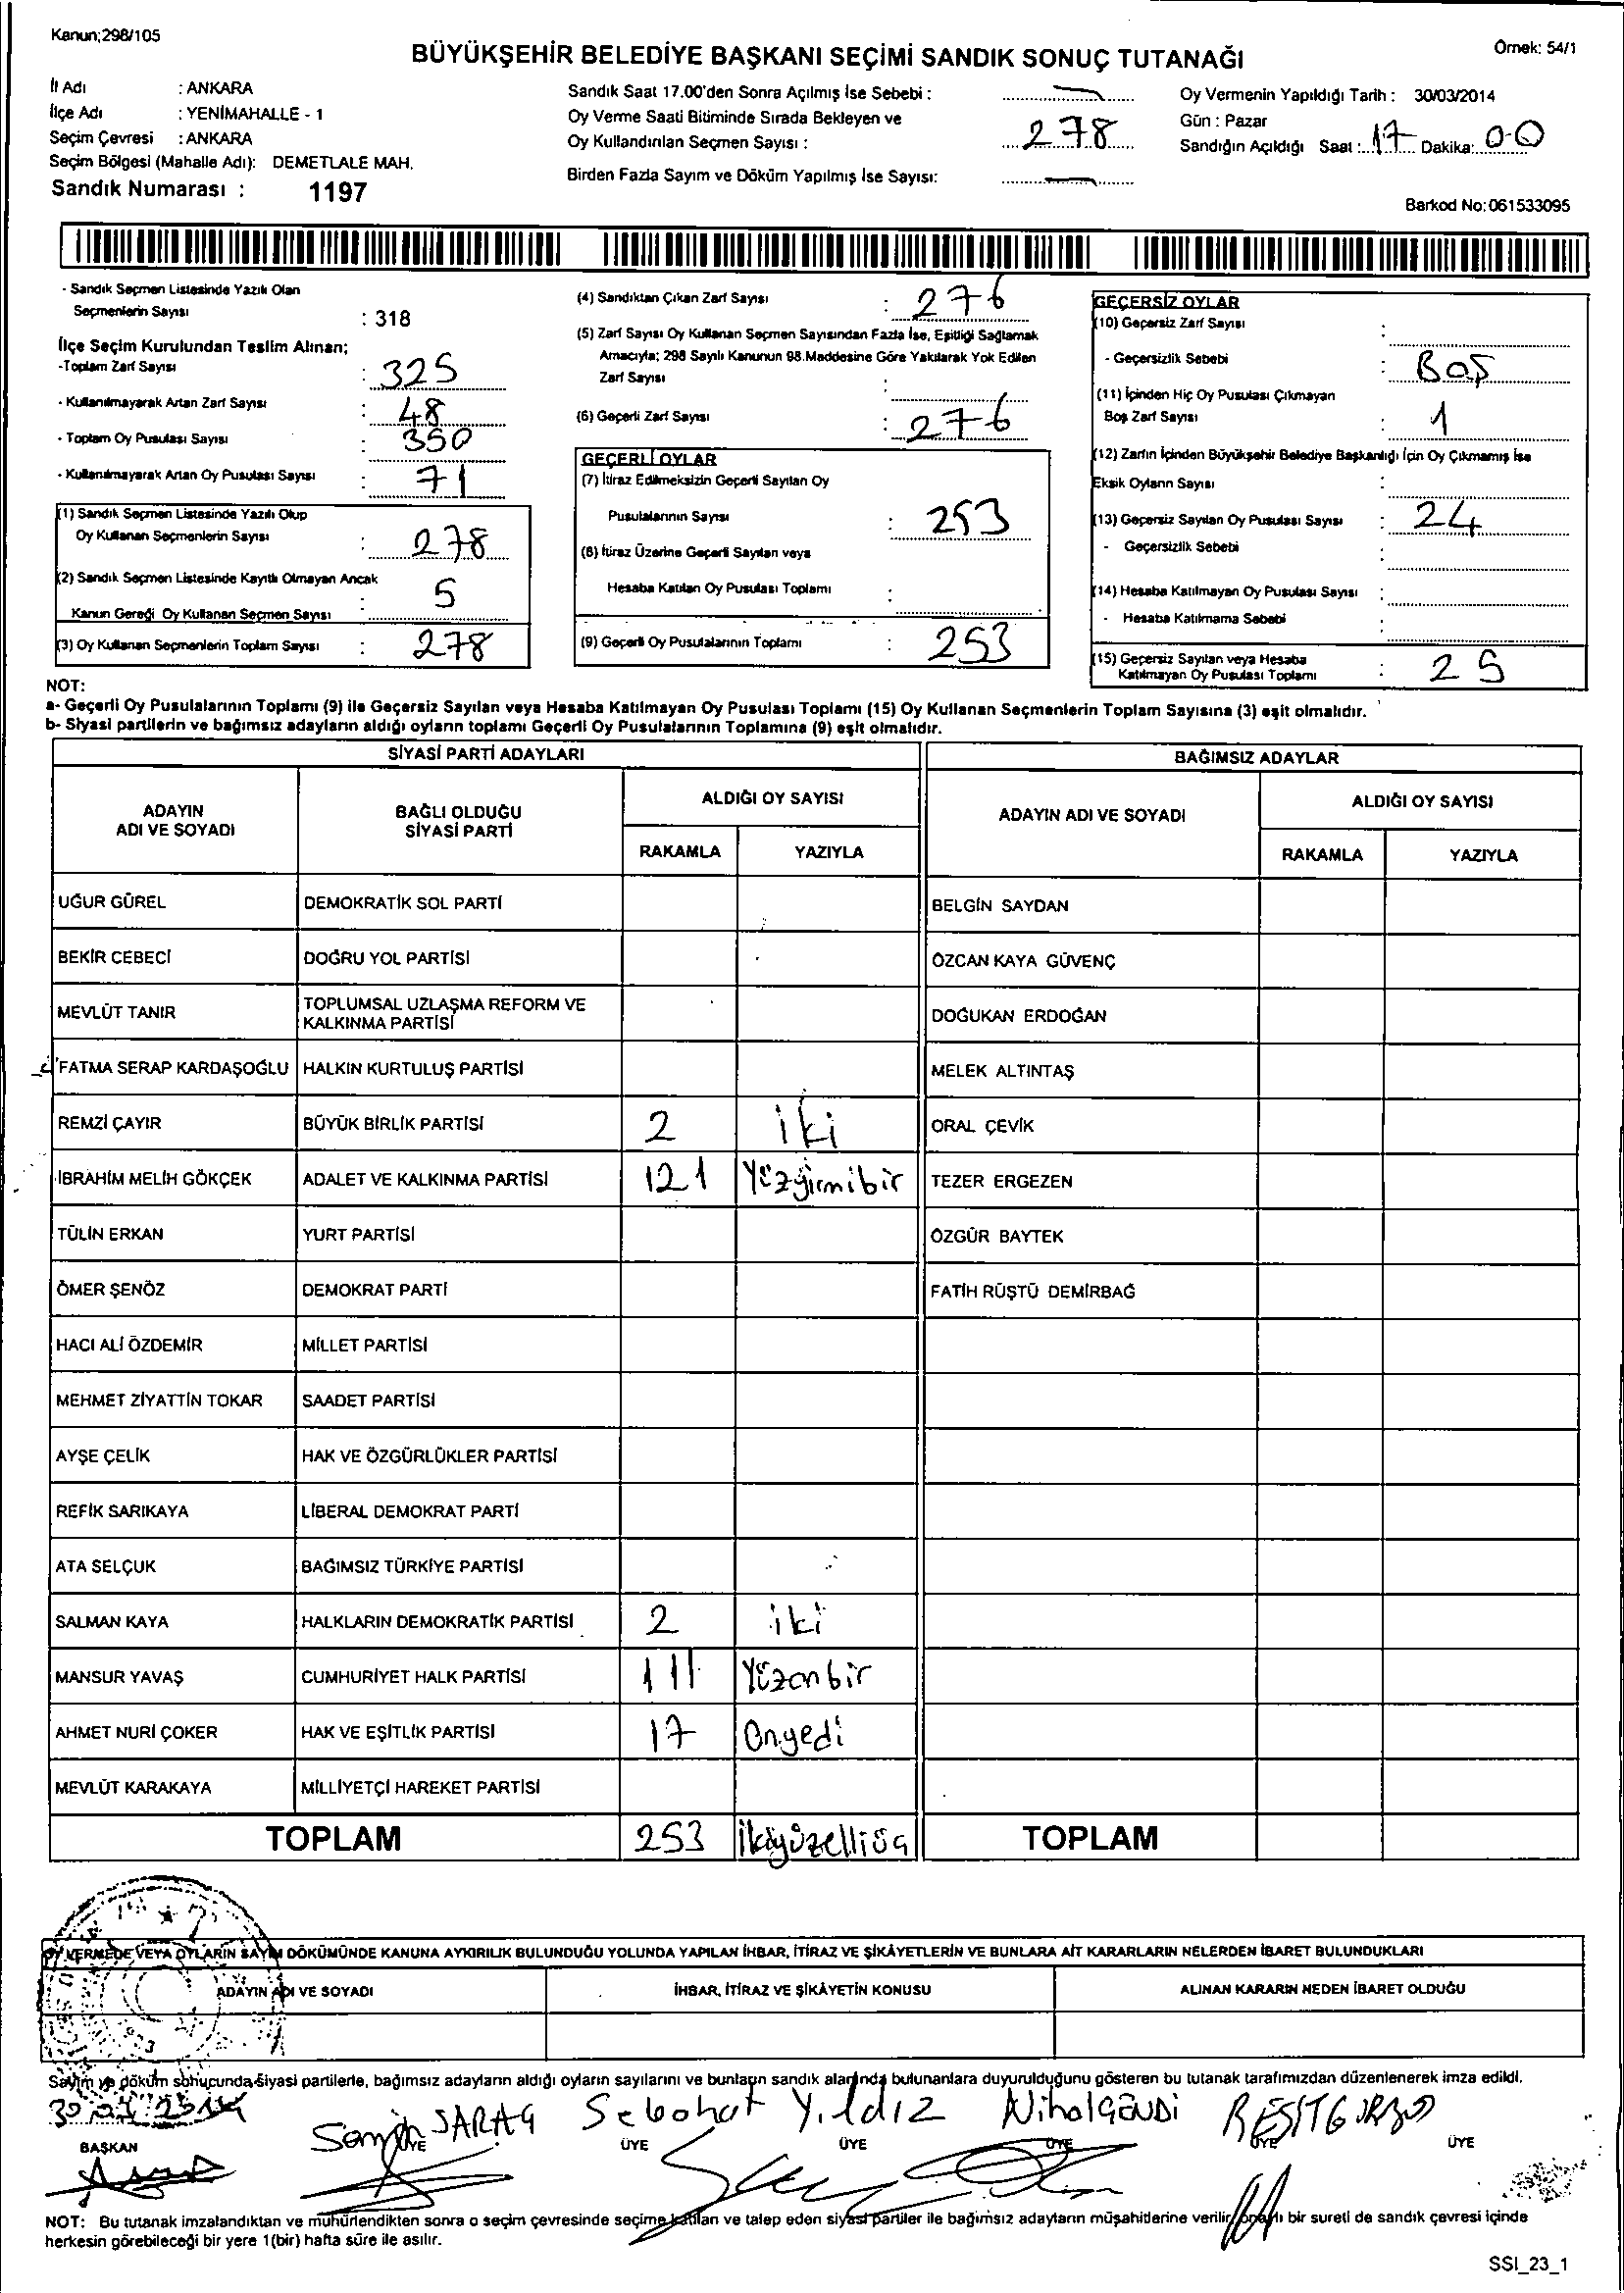 Kanun;298/105
BÜYÜKŞEHİR BELEDİYE BAŞKANI SEÇİMİ SANDIK SONUÇ TUTANAĞI
Örnek: 54/1
İl Adı : ANKARA
İlçe Adı : YENİMAHALLE - 1
Seçim Çevresi : ANKARA
Seçim Bölgesi (Mahalle Adı): DEMETLALE MAH.
Sandık Numarası : 1197
Sandık Saat 17.00'den Sonra Açılmış İse Sebebi :
Oy Verme Saati Bitiminde Sırada Bekleyen ve
Oy Kullandırılan Seçmen Sayısı : 278
Birden Fazla Sayım ve Döküm Yapılmış İse Sayısı:
Oy Vermenin Yapıldığı Tarih : 30/03/2014
Gün : Pazar
Sandığın Açıldığı Saat : 17 Dakika: 00
Barkod No:061533095
- Sandık Seçmen Listesinde Yazılı Olan
Seçmenlerin Sayısı : 318
İlçe Seçim Kurulundan Teslim Alınan;
-Toplam Zarf Sayısı : 325
- Kullanılmayarak Artan Zarf Sayısı : 48
- Toplam Oy Pusulası Sayısı : 350
- Kullanılmayarak Artan Oy Pusulası Sayısı : 71
(1) Sandık Seçmen Listesinde Yazılı Olup
Oy Kullanan Seçmenlerin Sayısı : 278
(2) Sandık Seçmen Listesinde Kayıtlı Olmayan Ancak
Kanun Gereği Oy Kullanan Seçmen Sayısı : 5
(3) Oy Kullanan Seçmenlerin Toplam Sayısı : 278
(4) Sandıktan Çıkan Zarf Sayısı : 276
(5) Zarf Sayısı Oy Kullanan Seçmen Sayısından Fazla İse, Eşitliği Sağlamak
Amacıyla; 298 Sayılı Kanunun 98.Maddesine Göre Yakılarak Yok Edilen
Zarf Sayısı :
(6) Geçerli Zarf Sayısı : 276
GEÇERLİ OYLAR
(7) İtiraz Edilmeksizin Geçerli Sayılan Oy
Pusulalarının Sayısı : 253
(8) İtiraz Üzerine Geçerli Sayılan veya
Hesaba Katılan Oy Pusulası Toplamı :
(9) Geçerli Oy Pusulalarının Toplamı : 253
GEÇERSİZ OYLAR
(10) Geçersiz Zarf Sayısı :
- Geçersizlik Sebebi : Boş
(11) İçinden Hiç Oy Pusulası Çıkmayan
Boş Zarf Sayısı : 1
(12) Zarfın İçinden Büyükşehir Belediye Başkanlığı İçin Oy Çıkmamış İse
Eksik Oyların Sayısı :
(13) Geçersiz Sayılan Oy Pusulası Sayısı : 24
- Geçersizlik Sebebi :
(14) Hesaba Katılmayan Oy Pusulası Sayısı :
- Hesaba Katılmama Sebebi :
(15) Geçersiz Sayılan veya Hesaba
Katılmayan Oy Pusulası Toplamı : 25
NOT:
a- Geçerli Oy Pusulalarının Toplamı (9) ile Geçersiz Sayılan veya Hesaba Katılmayan Oy Pusulası Toplamı (15) Oy Kullanan Seçmenlerin Toplam Sayısına (3) eşit olmalıdır.
b- Siyasi partilerin ve bağımsız adayların aldığı oyların toplamı Geçerli Oy Pusulalarının Toplamına (9) eşit olmalıdır.
SİYASİ PARTİ ADAYLARI BAĞIMSIZ ADAYLAR
ADAYIN ADI VE SOYADI BAĞLI OLDUĞU SİYASİ PARTİ ALDIĞI OY SAYISI ADAYIN ADI VE SOYADI ALDIĞI OY SAYISI
RAKAMLA YAZIYLA RAKAMLA YAZIYLA
UĞUR GÜREL DEMOKRATİK SOL PARTİ BELGİN SAYDAN
BEKİR CEBECİ DOĞRU YOL PARTİSİ ÖZCAN KAYA GÜVENÇ
MEVLÜT TANIR TOPLUMSAL UZLAŞMA REFORM VE KALKINMA PARTİSİ DOĞUKAN ERDOĞAN
FATMA SERAP KARDAŞOĞLU HALKIN KURTULUŞ PARTİSİ MELEK ALTINTAŞ
REMZİ ÇAYIR BÜYÜK BİRLİK PARTİSİ 2 iki ORAL ÇEVİK
İBRAHİM MELİH GÖKÇEK ADALET VE KALKINMA PARTİSİ 121 Yüzyirmibir TEZER ERGEZEN
TÜLİN ERKAN YURT PARTİSİ ÖZGÜR BAYTEK
ÖMER ŞENÖZ DEMOKRAT PARTİ FATİH RÜŞTÜ DEMİRBAĞ
HACI ALİ ÖZDEMİR MİLLET PARTİSİ
MEHMET ZİYATTİN TOKAR SAADET PARTİSİ
AYŞE ÇELİK HAK VE ÖZGÜRLÜKLER PARTİSİ
REFİK SARIKAYA LİBERAL DEMOKRAT PARTİ
ATA SELÇUK BAĞIMSIZ TÜRKİYE PARTİSİ
SALMAN KAYA HALKLARIN DEMOKRATİK PARTİSİ 2 iki
MANSUR YAVAŞ CUMHURİYET HALK PARTİSİ 111 Yüzonbir
AHMET NURİ ÇOKER HAK VE EŞİTLİK PARTİSİ 17 Onyedi
MEVLÜT KARAKAYA MİLLİYETÇİ HAREKET PARTİSİ
TOPLAM 253 ikiyüzelliüç TOPLAM
OY VERMEDE VEYA OYLARIN SAYIM DÖKÜMÜNDE KANUNA AYKIRILIK BULUNDUĞU YOLUNDA YAPILAN İHBAR, İTİRAZ VE ŞİKÂYETLERİN VE BUNLARA AİT KARARLARIN NELERDEN İBARET BULUNDUKLARI
ADAYIN ADI VE SOYADI İHBAR, İTİRAZ VE ŞİKÂYETİN KONUSU ALINAN KARARIN NEDEN İBARET OLDUĞU
Sayım ve döküm sonucunda siyasi partilerle, bağımsız adayların aldığı oyların sayılarını ve bunların sandık alanında bulunanlara duyurulduğunu gösteren bu tutanak tarafımızdan düzenlenerek imza edildi.
SARAÇ Sebahat Yıldız Nihal
BAŞKAN ÜYE ÜYE ÜYE ÜYE ÜYE ÜYE
NOT: Bu tutanak imzalandıktan ve mühürlendikten sonra o seçim çevresinde seçime katılan ve talep eden siyasi partiler ile bağımsız adayların müşahitlerine verilir, onaylı bir sureti de sandık çevresi içinde
herkesin görebileceği bir yere 1(bir) hafta süre ile asılır.
SSI_23_1